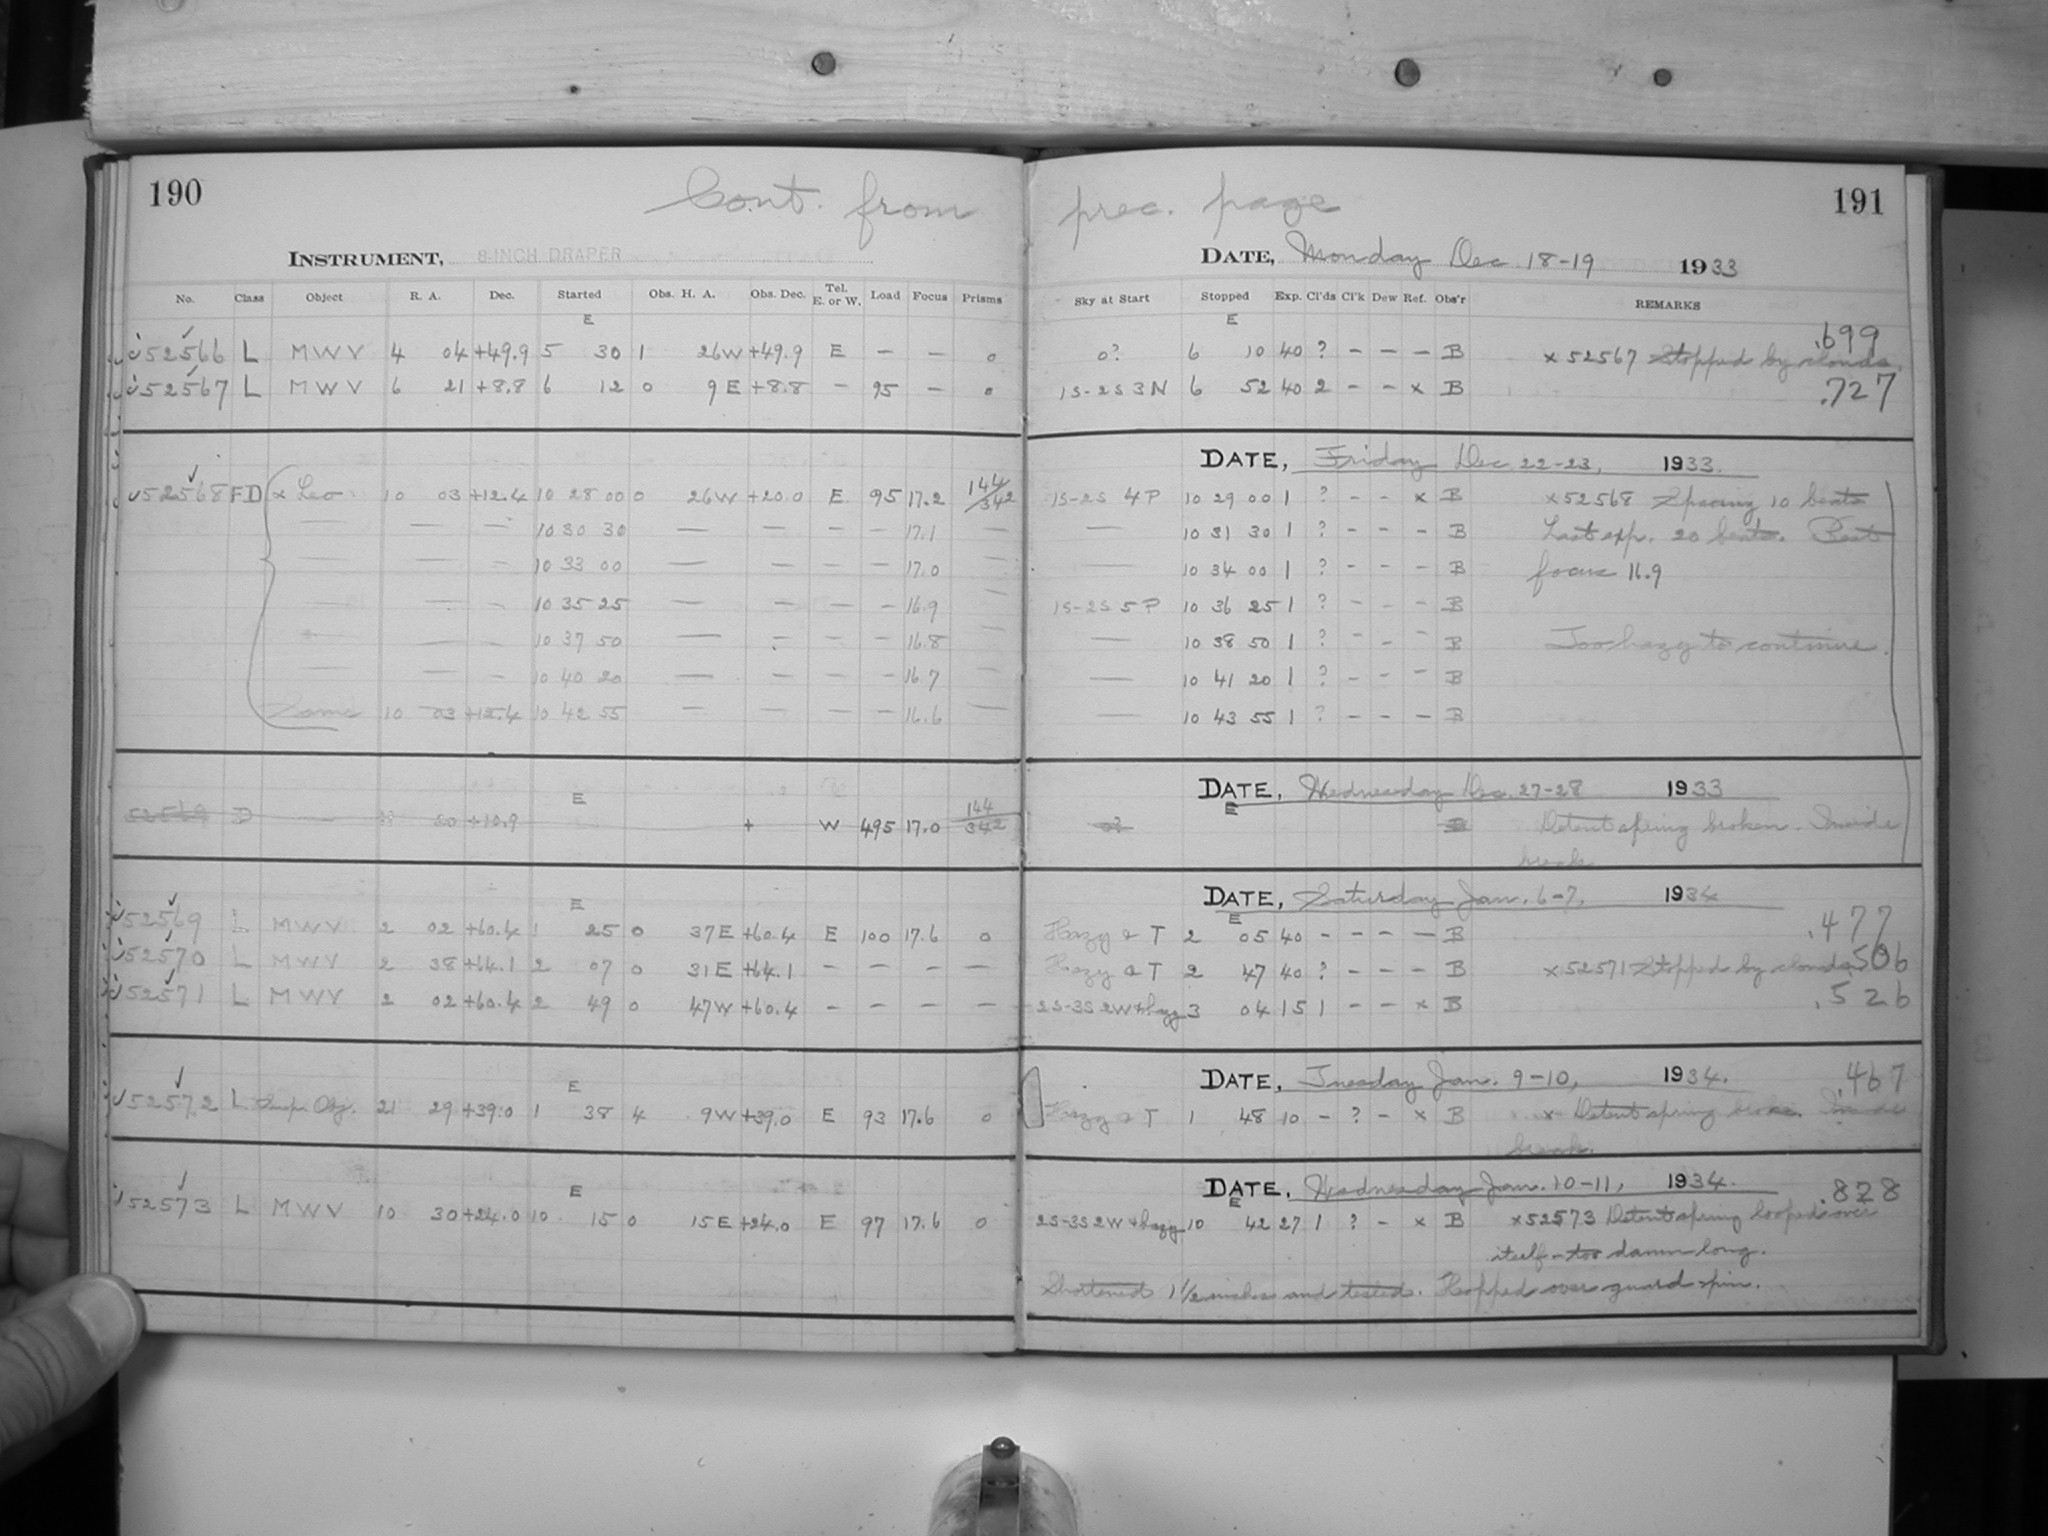 190
Cont. from prec. page
191
INSTRUMENT, 8-INCH DRAPER
DATE, Monday Dec 18-19 1933
No. Class Object R. A. Dec. Started Obs. H. A. Obs. Dec. Tel. E. or W. Load Focus Prisms Sky at Start Stopped Exp. Cl'ds Cl'k Dew Ref. Obs'r REMARKS
E E .699
52566 L MWV 4 04 +49.9 5 30 1 26W +49.9 E — — 0 0? 6 10 40 ? – – – B x 52567 Stopped by clouds.
52567 L MWV 6 21 +8.8 6 12 0 9E +8.8 – 95 – 0 1S-2S 3N 6 52 40 2 – – x B .727
DATE, Friday Dec 22-23, 1933.
52568 FD x Leo 10 03 +12.4 10 28 00 0 26W +20.0 E 95 17.2 144/342 1S-2S 4P 10 29 00 1 ? – – x B x52568 Spacing 10 beats
— — — 10 30 30 — — — — 17.1 — — 10 31 30 1 ? – – – B Last exp. 20 beats. Best
— — — 10 33 00 — — — — 17.0 — — 10 34 00 1 ? – – – B focus 16.9
— — — 10 35 25 — — — — 16.9 — 1S-2S 5P 10 36 25 1 ? – – – B
— — — 10 37 50 — — — — 16.8 — — 10 38 50 1 ? – – – B Too hazy to continue.
— — — 10 40 20 — — — — 16.7 — — 10 41 20 1 ? – – – B
Same 10 03 +12.4 10 42 55 — — — — 16.6 — — 10 43 55 1 ? – – – B
DATE, Wednesday Dec. 27-28 1933
E E
52569 D +10.9 + W 495 17.0 144/342 0? B Detent spring broken. Inside
break
DATE, Saturday Jan. 6-7, 1934
E E
52569 L MWV 2 02 +60.4 1 25 0 37E +60.4 E 100 17.6 0 Hazy & T 2 05 40 – – – – B .477
52570 L MWV 2 38 +64.1 2 07 0 31E +64.1 – – – – Hazy & T 2 47 40 ? – – – B x52571 Stopped by clouds .506
52571 L MWV 2 02 +60.4 2 49 0 47W +60.4 – – – – 2S-3S 2W & hazy 3 04 15 1 – – x B .526
DATE, Tuesday Jan. 9-10, 1934. .467
E
52572 L Insp. Obj. 21 29 +39.0 1 38 4 9W +39.0 E 93 17.6 0 Hazy & T 1 48 10 – ? – x B x Detent spring broke. Inside
break.
DATE, Wednesday Jan. 10-11, 1934. .828
E E
52573 L MWV 10 30 +24.0 10 15 0 15E +24.0 E 97 17.6 0 2S-3S 2W & hazy 10 42 27 1 ? – x B x52573 Detent spring looped over
itself - too damn long.
Shortened 1½ inches and tested. Hopped over guard pin.